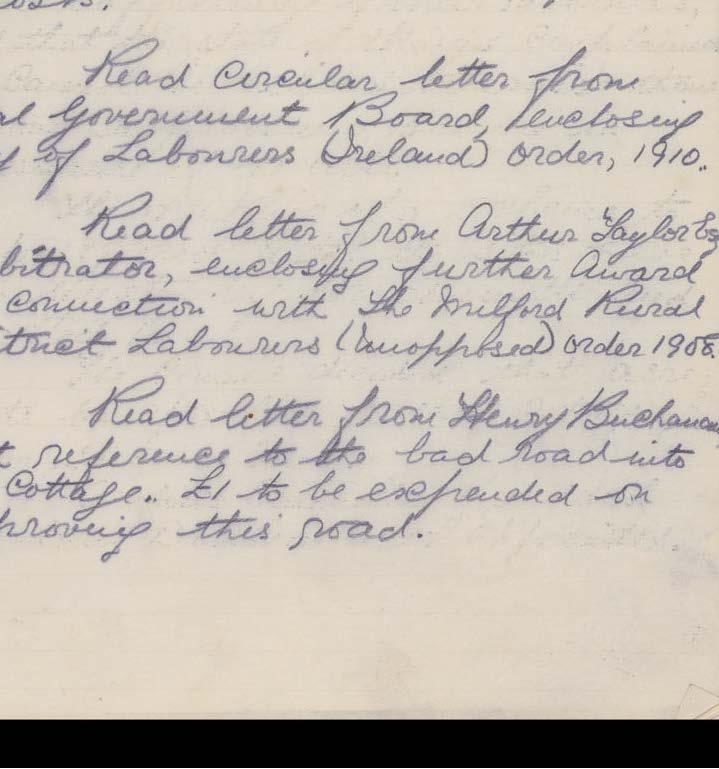 Read Circular letter from
al Government Board, enclosing
y of Labourers (Ireland) Order, 1910.
Read letter from Arthur Taylor Esq
bitrator, enclosing further Award
connection with the Milford Rural
trict Labourers (Unopposed) Order 1908.
Read letter from Henry Buchanan
t reference to the bad road into
Cottage. £1 to be expended on
proving this road.